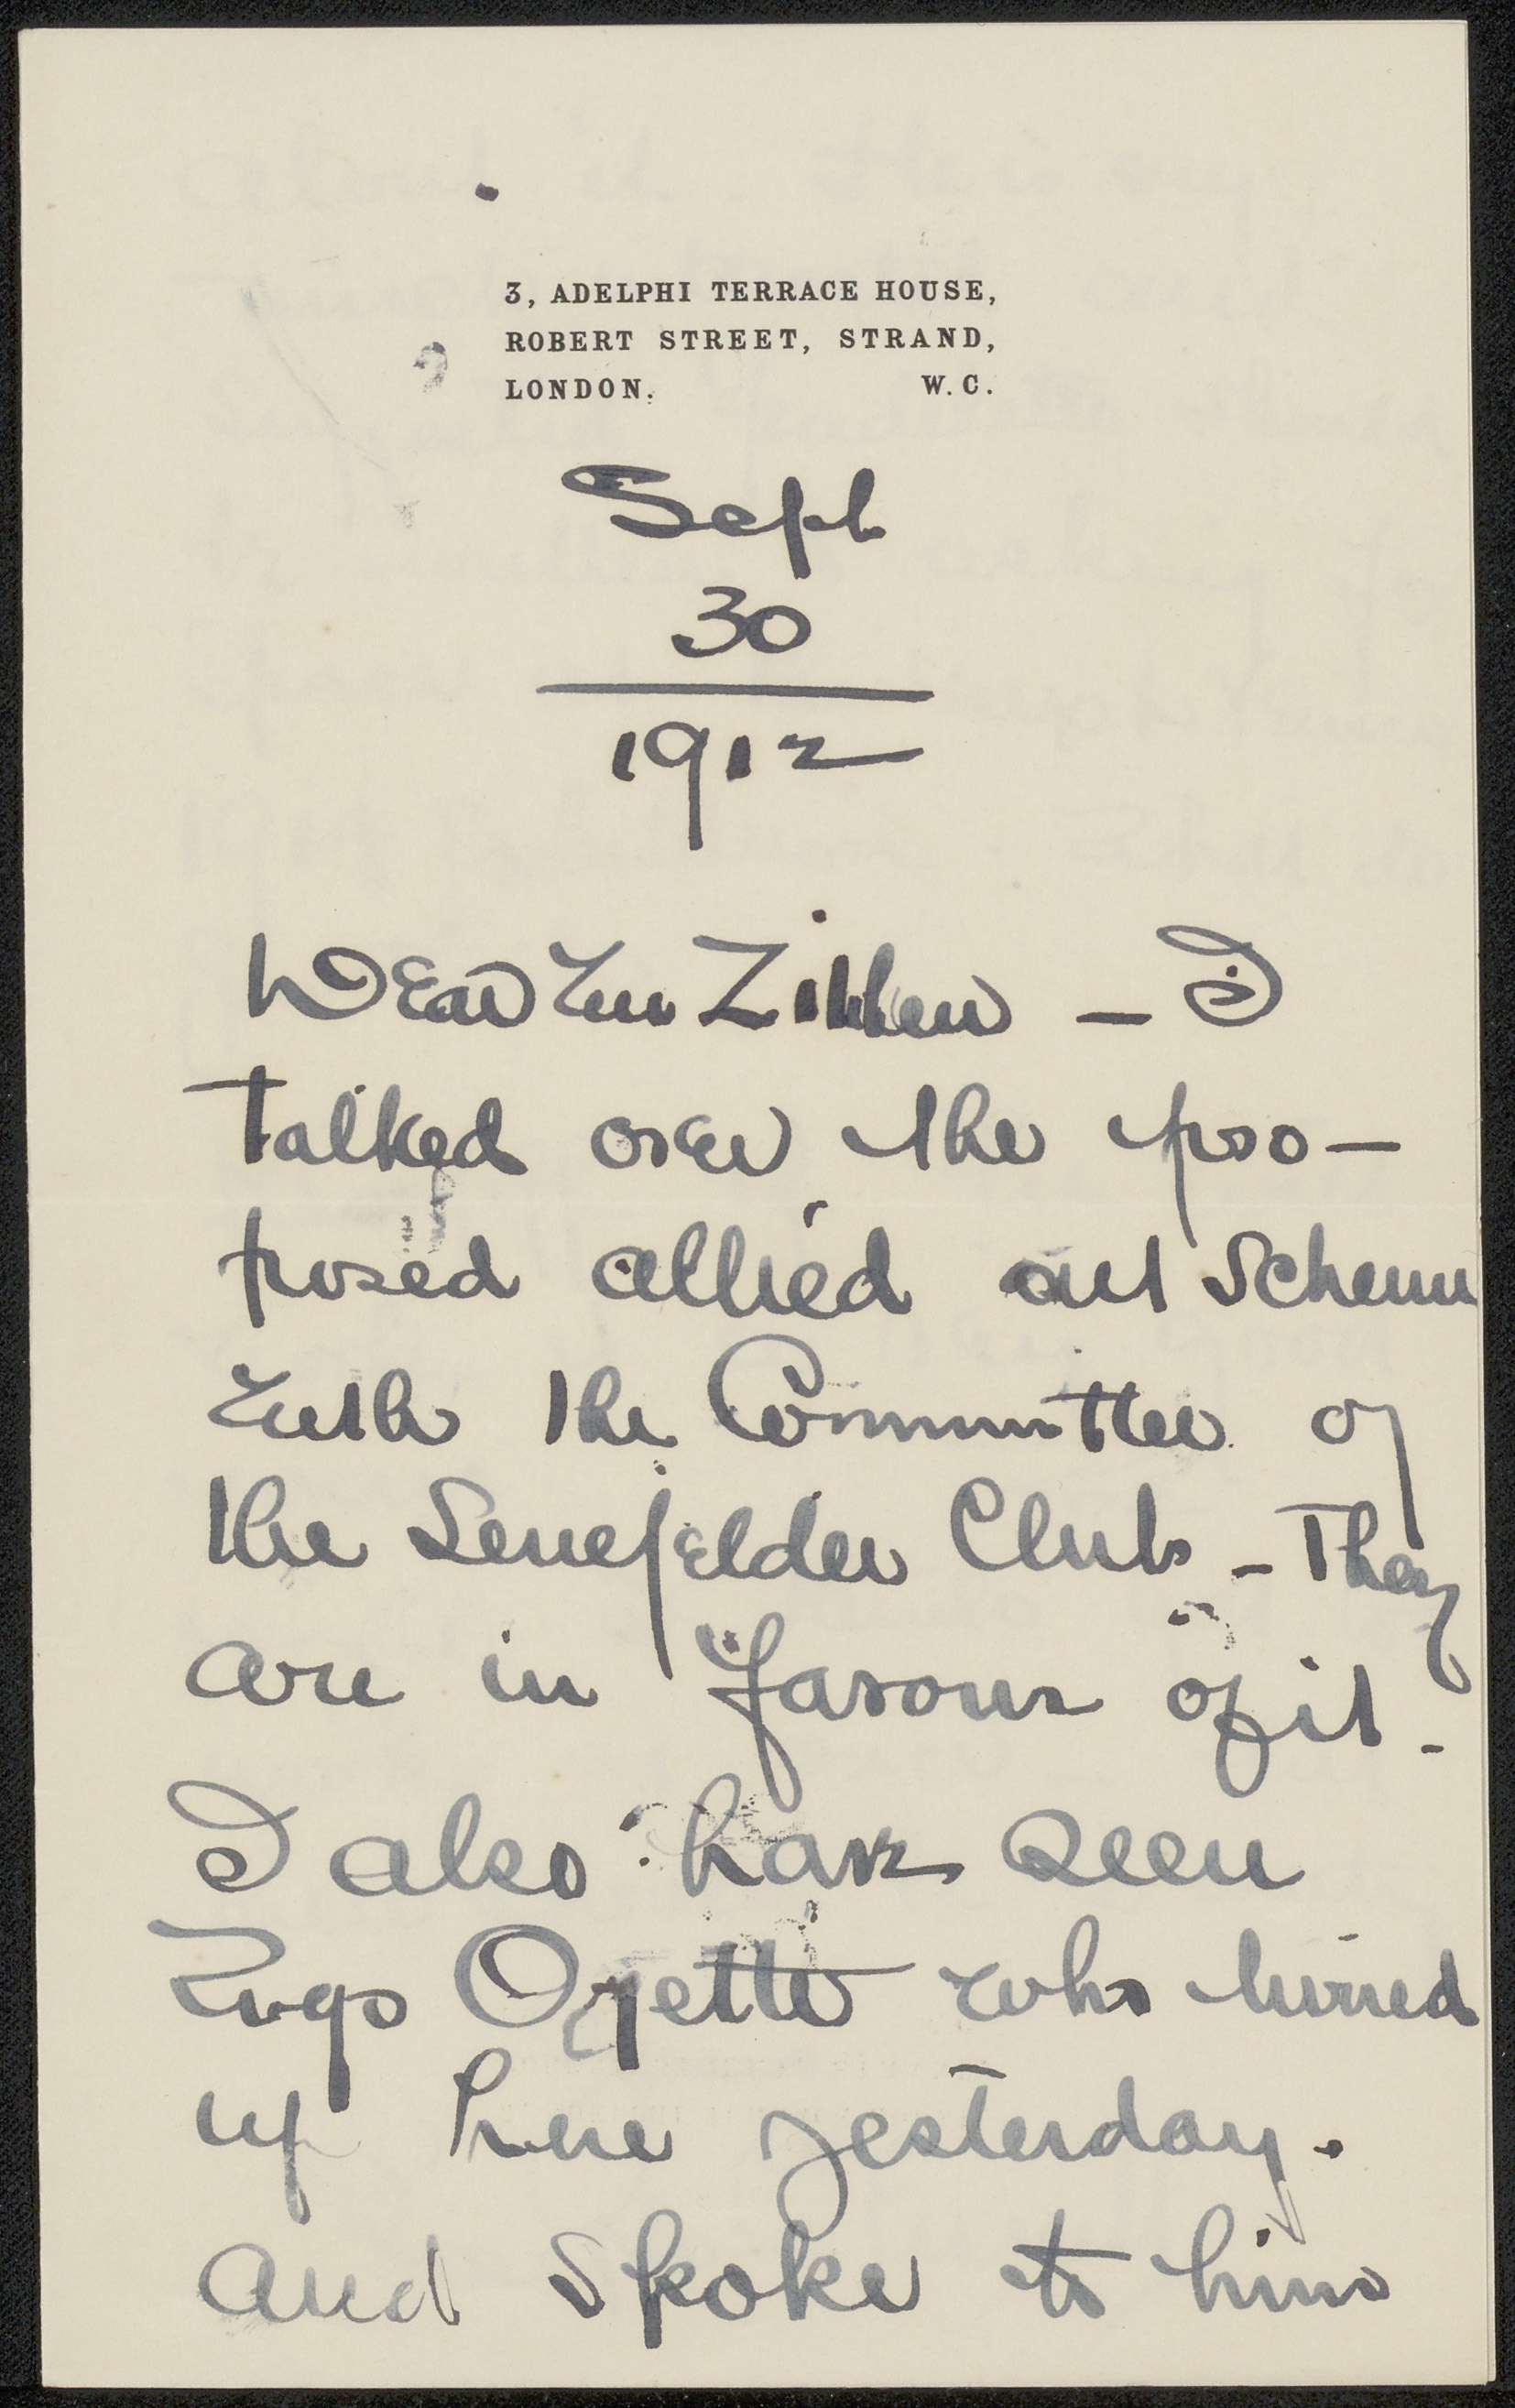 3, ADELPHI TERRACE HOUSE,
ROBERT STREET, STRAND,
LONDON. W.C.
Sept
30
1912
Dear Zilcken — I
talked over the pro—
posed allied art scheme
with the Committee of
the Senefelder Club — They
are in favour of it.
I also have seen
Ugo Ojetti who turned
up here yesterday.
and spoke to him